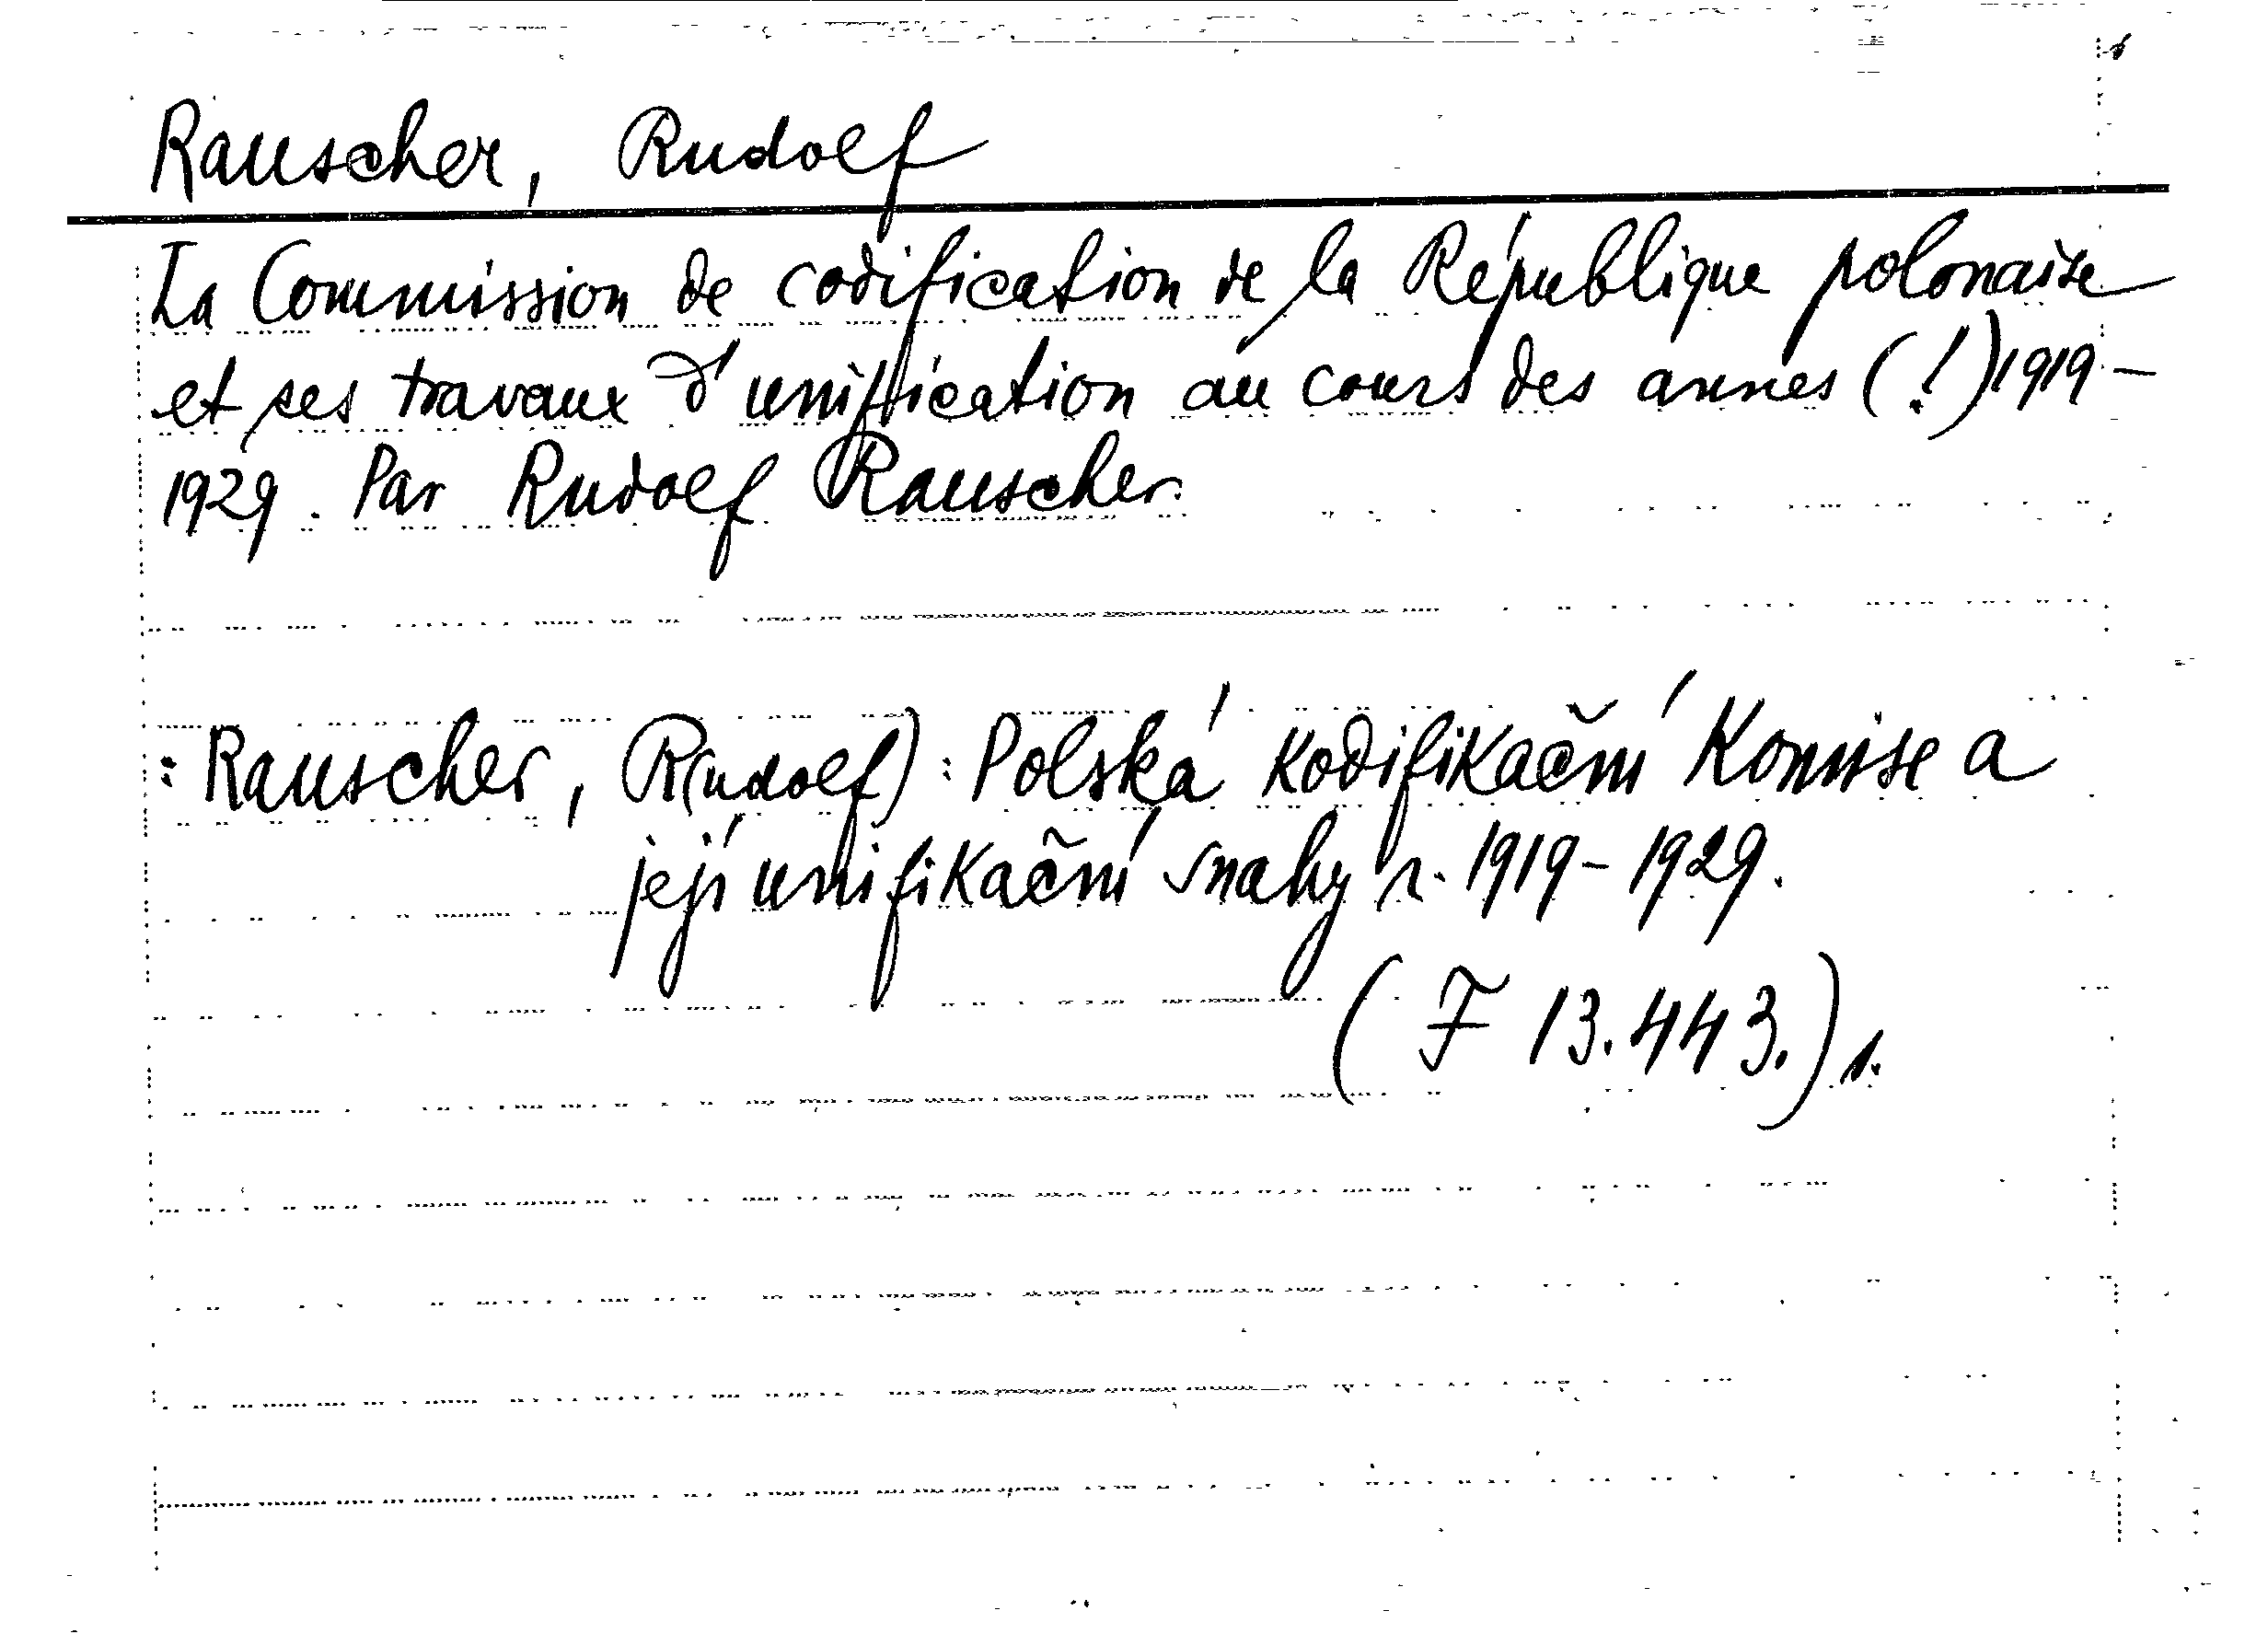 Rauscher, Rudolf
La Commission de codification de la République polonaise
et ses travaux d'unification au cours des annés (!) 1919–
1929. Par Rudolf Rauscher.
: Rauscher, R(udolf): Polská kodifikační komise a
její unifikační snahy r. 1919–1929.
(F 13.443.) 1.